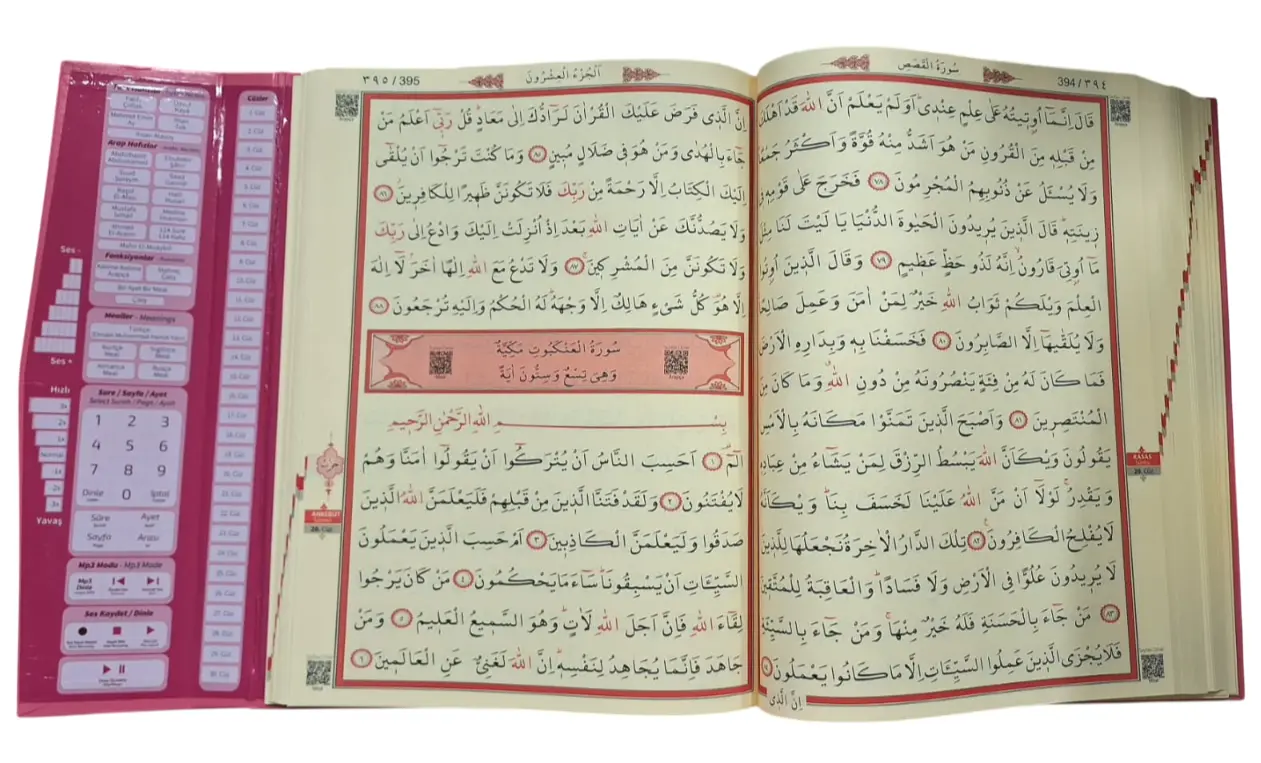 394/٣٩٤
سُورَةُ الْقَصَصِ
قَالَ اِنَّمَٓا اُو۫ت۪يتُهُ عَلٰى عِلْمٍ عِنْد۪يۜ اَوَلَمْ يَعْلَمْ اَنَّ اللّٰهَ قَدْ اَهْلَكَ
مِنْ قَبْلِه۪ مِنَ الْقُرُونِ مَنْ هُوَ اَشَدُّ مِنْهُ قُوَّةً وَاَكْثَرُ جَمْعًاۜ
وَلَا يُسْـَٔلُ عَنْ ذُنُوبِهِمُ الْمُجْرِمُونَ ٧٨ فَخَرَجَ عَلٰى قَوْمِه۪ ف۪ي
ز۪ينَتِه۪ۜ قَالَ الَّذ۪ينَ يُر۪يدُونَ الْحَيٰوةَ الدُّنْيَا يَا لَيْتَ لَنَا مِثْلَ
مَٓا اُو۫تِيَ قَارُونُۙ اِنَّهُ لَذُو حَظٍّ عَظ۪يمٍ ٧٩ وَقَالَ الَّذ۪ينَ اُو۫تُوا
الْعِلْمَ وَيْلَكُمْ ثَوَابُ اللّٰهِ خَيْرٌ لِمَنْ اٰمَنَ وَعَمِلَ صَالِحًاۚ
وَلَا يُلَقّٰيهَٓا اِلَّا الصَّابِرُونَ ٨٠ فَخَسَفْنَا بِه۪ وَبِدَارِهِ الْاَرْضَ
فَمَا كَانَ لَهُ مِنْ فِئَةٍ يَنْصُرُونَهُ مِنْ دُونِ اللّٰهِۗ وَمَا كَانَ مِنَ
الْمُنْتَصِر۪ينَ ٨١ وَاَصْبَحَ الَّذ۪ينَ تَمَنَّوْا مَكَانَهُ بِالْاَمْسِ
يَقُولُونَ وَيْكَاَنَّ اللّٰهَ يَبْسُطُ الرِّزْقَ لِمَنْ يَشَٓاءُ مِنْ عِبَادِه۪
وَيَقْدِرُۚ لَوْلَٓا اَنْ مَنَّ اللّٰهُ عَلَيْنَا لَخَسَفَ بِنَاۜ وَيْكَاَنَّهُ
لَا يُفْلِحُ الْكَافِرُونَ۟ ٨٢ تِلْكَ الدَّارُ الْاٰخِرَةُ نَجْعَلُهَا لِلَّذ۪ينَ
لَا يُر۪يدُونَ عُلُوًّا فِي الْاَرْضِ وَلَا فَسَادًاۜ وَالْعَاقِبَةُ لِلْمُتَّق۪ينَ
٨٣ مَنْ جَٓاءَ بِالْحَسَنَةِ فَلَهُ خَيْرٌ مِنْهَاۚ وَمَنْ جَٓاءَ بِالسَّيِّئَةِ
فَلَا يُجْزَى الَّذ۪ينَ عَمِلُوا السَّيِّـَٔاتِ اِلَّا مَا كَانُوا يَعْمَلُونَ
اِنَّ الَّذ۪ي
KASAS
Sûresi
20. Cüz
٣٩٥ / 395
اَلْجُزْءُ الْعِشْرُونَ
اِنَّ الَّذ۪ي فَرَضَ عَلَيْكَ الْقُرْاٰنَ لَرَٓادُّكَ اِلٰى مَعَادٍۜ قُلْ رَبّ۪ٓي اَعْلَمُ مَنْ
جَٓاءَ بِالْهُدٰى وَمَنْ هُوَ ف۪ي ضَلَالٍ مُب۪ينٍ ٨٥ وَمَا كُنْتَ تَرْجُٓوا اَنْ يُلْقٰٓى
اِلَيْكَ الْكِتَابُ اِلَّا رَحْمَةً مِنْ رَبِّكَ فَلَا تَكُونَنَّ ظَه۪يرًا لِلْكَافِر۪ينَۘ ٨٦
وَلَا يَصُدُّنَّكَ عَنْ اٰيَاتِ اللّٰهِ بَعْدَ اِذْ اُنْزِلَتْ اِلَيْكَ وَادْعُ اِلٰى رَبِّكَ
وَلَا تَكُونَنَّ مِنَ الْمُشْرِك۪ينَۚ ٨٧ وَلَا تَدْعُ مَعَ اللّٰهِ اِلٰهًا اٰخَرَۢ لَٓا اِلٰهَ
اِلَّا هُوَ۠ كُلُّ شَيْءٍ هَالِكٌ اِلَّا وَجْهَهُۜ لَهُ الْحُكْمُ وَاِلَيْهِ تُرْجَعُونَ ٨٨
سُورَةُ الْعَنْكَبُوتِ مَكِّيَّةٌ
وَهِيَ تِسْعٌ وَسِتُّونَ اٰيَةً
بِسْمِ اللّٰهِ الرَّحْمٰنِ الرَّح۪يمِ
الٓمٓۜ ١ اَحَسِبَ النَّاسُ اَنْ يُتْرَكُٓوا اَنْ يَقُولُٓوا اٰمَنَّا وَهُمْ
لَا يُفْتَنُونَ ٢ وَلَقَدْ فَتَنَّا الَّذ۪ينَ مِنْ قَبْلِهِمْ فَلَيَعْلَمَنَّ اللّٰهُ الَّذ۪ينَ
صَدَقُوا وَلَيَعْلَمَنَّ الْكَاذِب۪ينَ ٣ اَمْ حَسِبَ الَّذ۪ينَ يَعْمَلُونَ
السَّيِّـَٔاتِ اَنْ يَسْبِقُونَاۜ سَٓاءَ مَا يَحْكُمُونَ ٤ مَنْ كَانَ يَرْجُوا
لِقَٓاءَ اللّٰهِ فَاِنَّ اَجَلَ اللّٰهِ لَاٰتٍۜ وَهُوَ السَّم۪يعُ الْعَل۪يمُ ٥ وَمَنْ
جَاهَدَ فَاِنَّمَا يُجَاهِدُ لِنَفْسِه۪ۜ اِنَّ اللّٰهَ لَغَنِيٌّ عَنِ الْعَالَم۪ينَ ٦
ANKEBUT
Sûresi
20. Cüz
Cüzler
1. Cüz
2. Cüz
3. Cüz
4. Cüz
5. Cüz
6. Cüz
7. Cüz
8. Cüz
9. Cüz
10. Cüz
11. Cüz
12. Cüz
13. Cüz
14. Cüz
15. Cüz
16. Cüz
17. Cüz
18. Cüz
19. Cüz
20. Cüz
21. Cüz
22. Cüz
23. Cüz
24. Cüz
25. Cüz
26. Cüz
27. Cüz
28. Cüz
29. Cüz
30. Cüz
Arap Hafızlar
Fonksiyonlar
Mealler - Meanings
Türkçe
Sure / Sayfa / Ayet
Select Surah / Page / Ayah
1 2 3
4 5 6
7 8 9
Dinle 0 İptal
Sûre Ayet
Sayfa Arası
Mp3 Modu - Mp3 Mode
Mp3
Dinle
Ses Kaydet / Dinle
Ses -
Ses +
Hızlı
3x
2x
1x
Normal
-1x
-2x
-3x
Yavaş